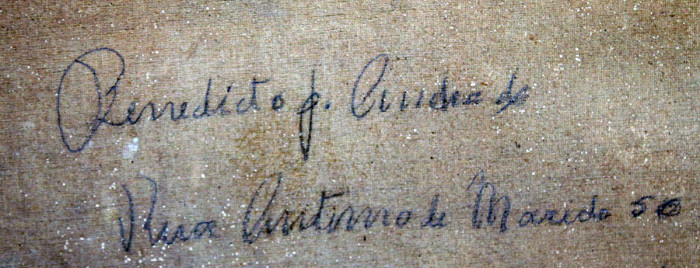 Benedicto J. Andrade
Rua Antonio de Macedo 50